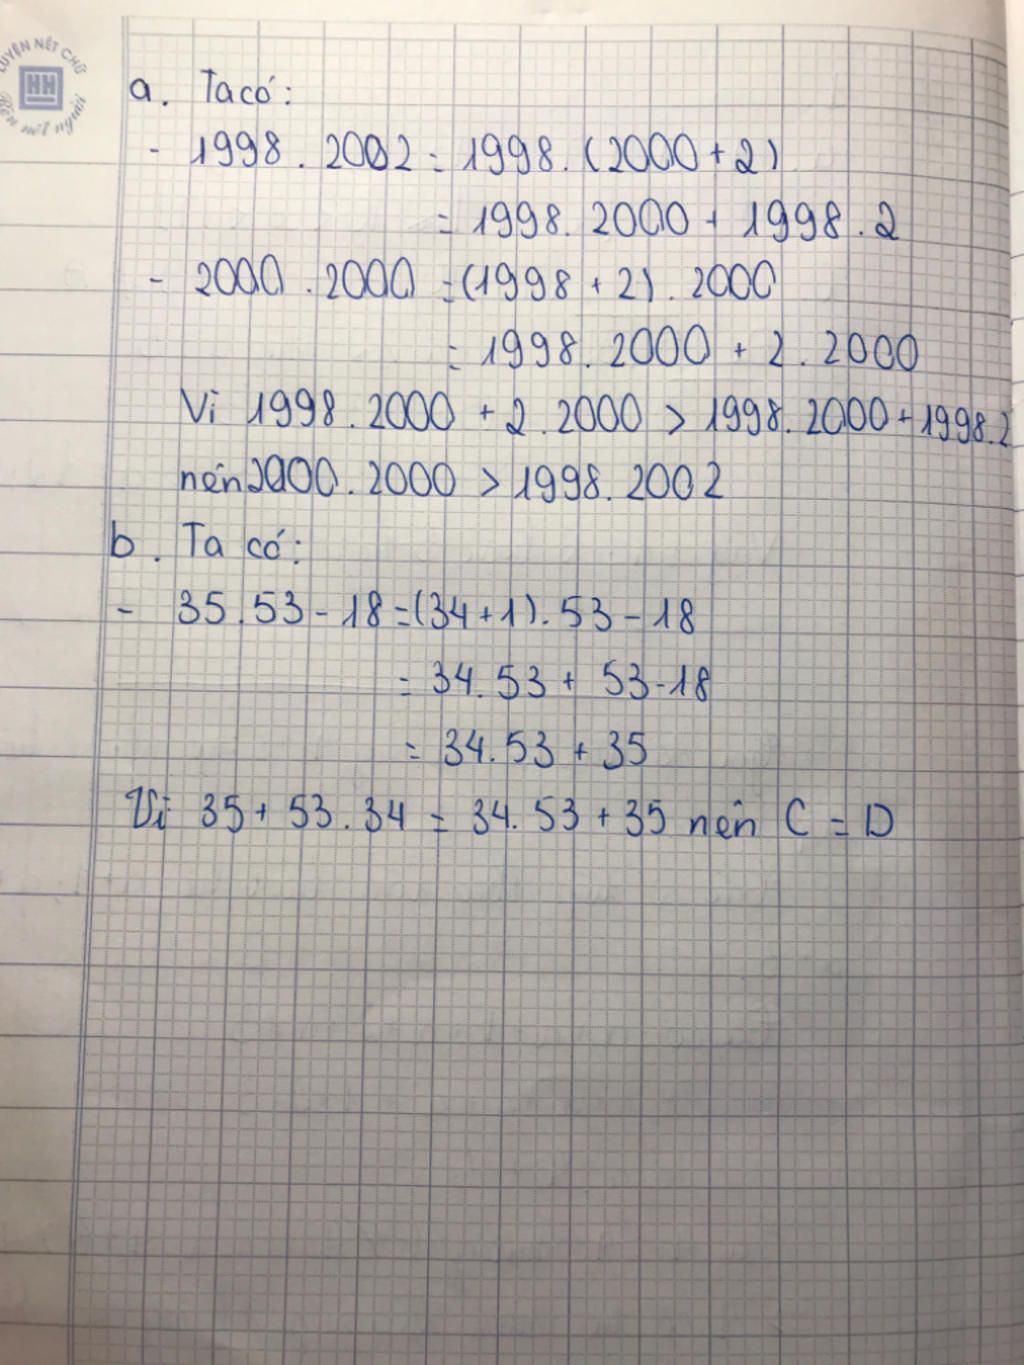 LUYỆN NÉT CHỮ
HH
Rèn nết người
a. Ta có:
- 1998. 2002 = 1998. (2000 + 2)
= 1998. 2000 + 1998 . 2
- 2000 . 2000 = (1998 + 2) . 2000
= 1998. 2000 + 2 . 2000
Vì 1998. 2000 + 2 . 2000 > 1998. 2000 + 1998.2
nên 2000. 2000 > 1998. 2002
b. Ta có:
- 35.53 - 18 = (34 + 1). 53 - 18
= 34. 53 + 53 - 18
= 34. 53 + 35
Vì 35 + 53. 34 = 34. 53 + 35 nên C = D